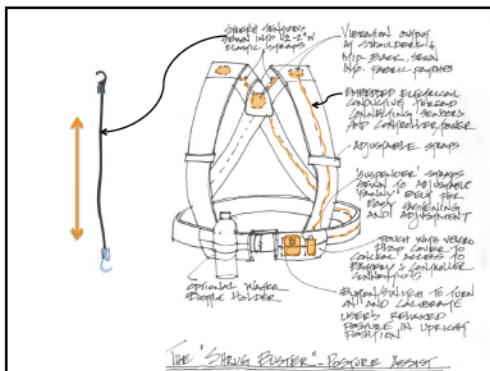 STRETCH SENSORS
SEWN INTO 1/2-2"W
ELASTIC STRAPS
VIBRATION OUTPUT
AT SHOULDERS &
MID BACK, SEWN
INTO FABRIC PATCHES
EMBEDDED ELECTRICAL
CONDUCTIVE THREAD
CONNECTING SENSORS
AND CONTROLLER/POWER
ADJUSTABLE STRAPS
"SUSPENDER" STRAPS
SEWN TO ADJUSTABLE
"FANNY" BELT FOR
EASY FASTENING
AND ADJUSTMENT
POUCH WITH VELCRO
FLAP COVER TO
CONCEAL ACCESS TO
BATTERY & CONTROLLER
BUTTON/SWITCH TO TURN
ON AND CALIBRATE
USER'S RELAXED
POSTURE IN UPRIGHT
POSITION
OPTIONAL WATER
BOTTLE HOLDER
THE "SHRUG BUSTER" - POSTURE ASSIST